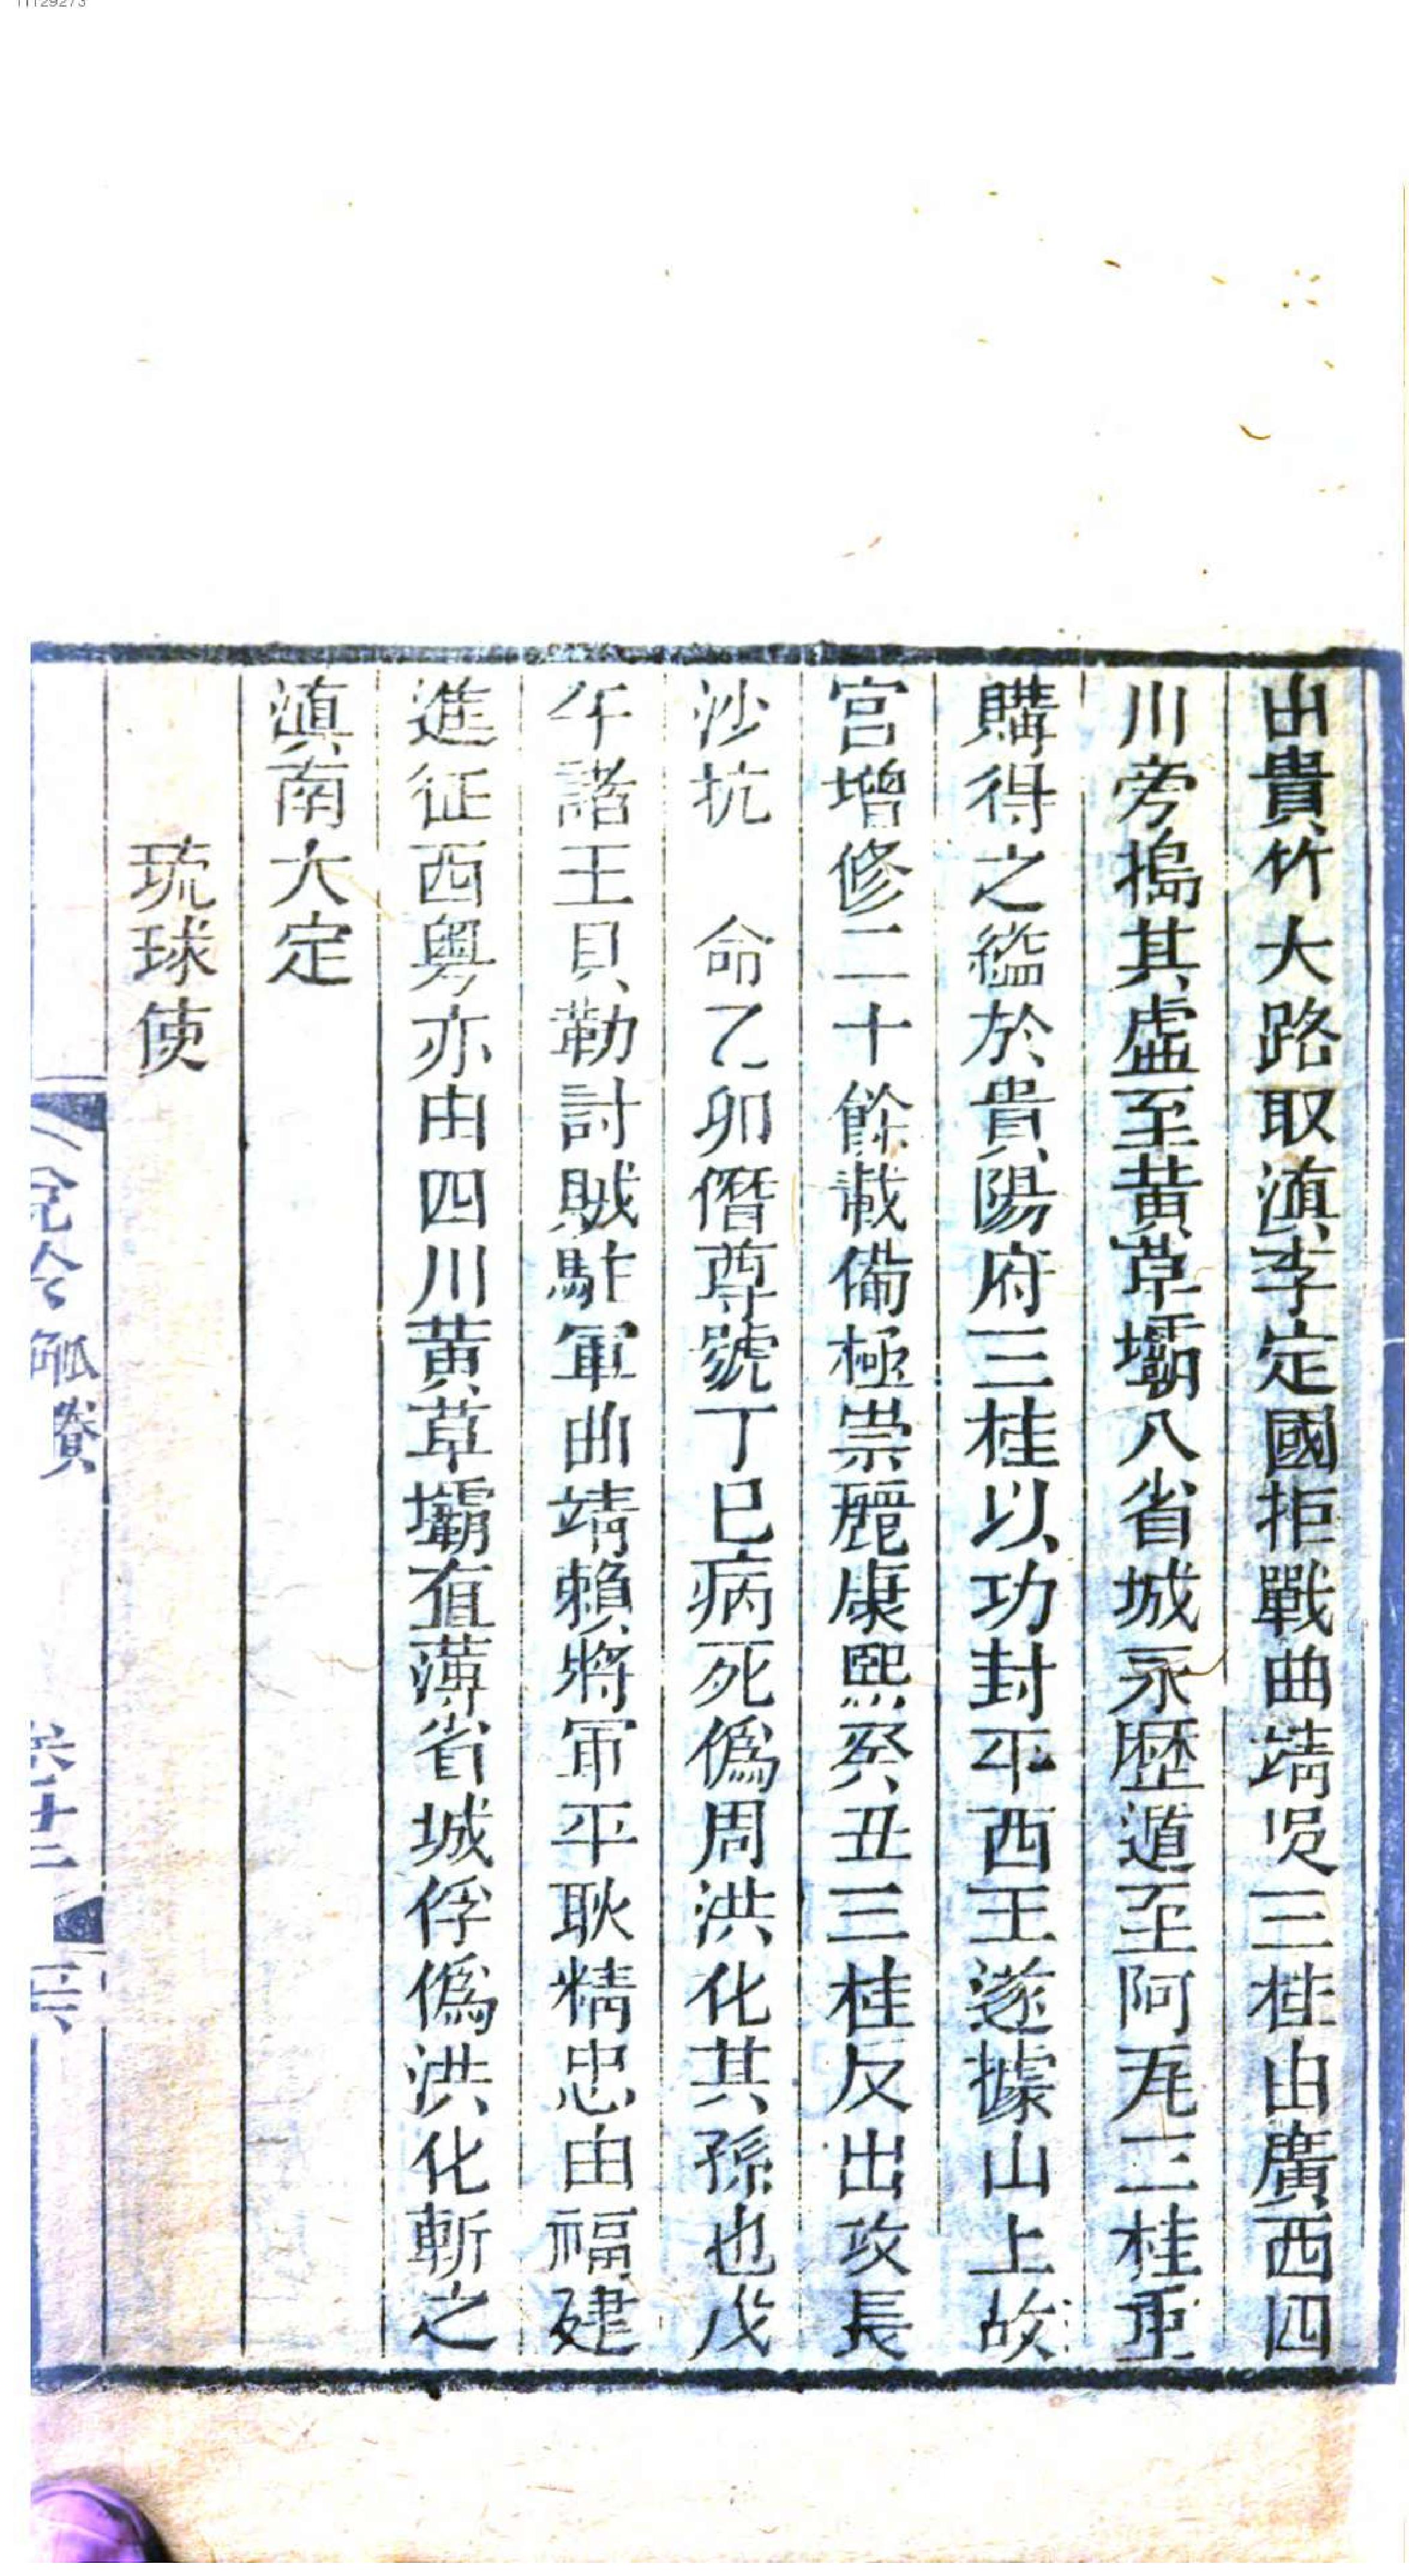 由貴竹大路取滇李定國拒戰曲靖吳三桂由廣西四
川旁搗其虛至黃草壩入省城永歷遁至阿瓦三桂重
購得之縊於貴陽府三桂以功封平西王遂據山上故
宮增修二十餘載備極崇麗康熙癸丑三桂反出攻長
沙抗　命乙卯僭尊號丁巳病死僞周洪化其孫也戊
午諸王貝勒討賊駐軍曲靖賴將軍平耿精忠由福建
進征西粵亦由四川黃草壩直薄省城俘僞洪化斬之
滇南大定
琉球使
觚賸
卷廿二